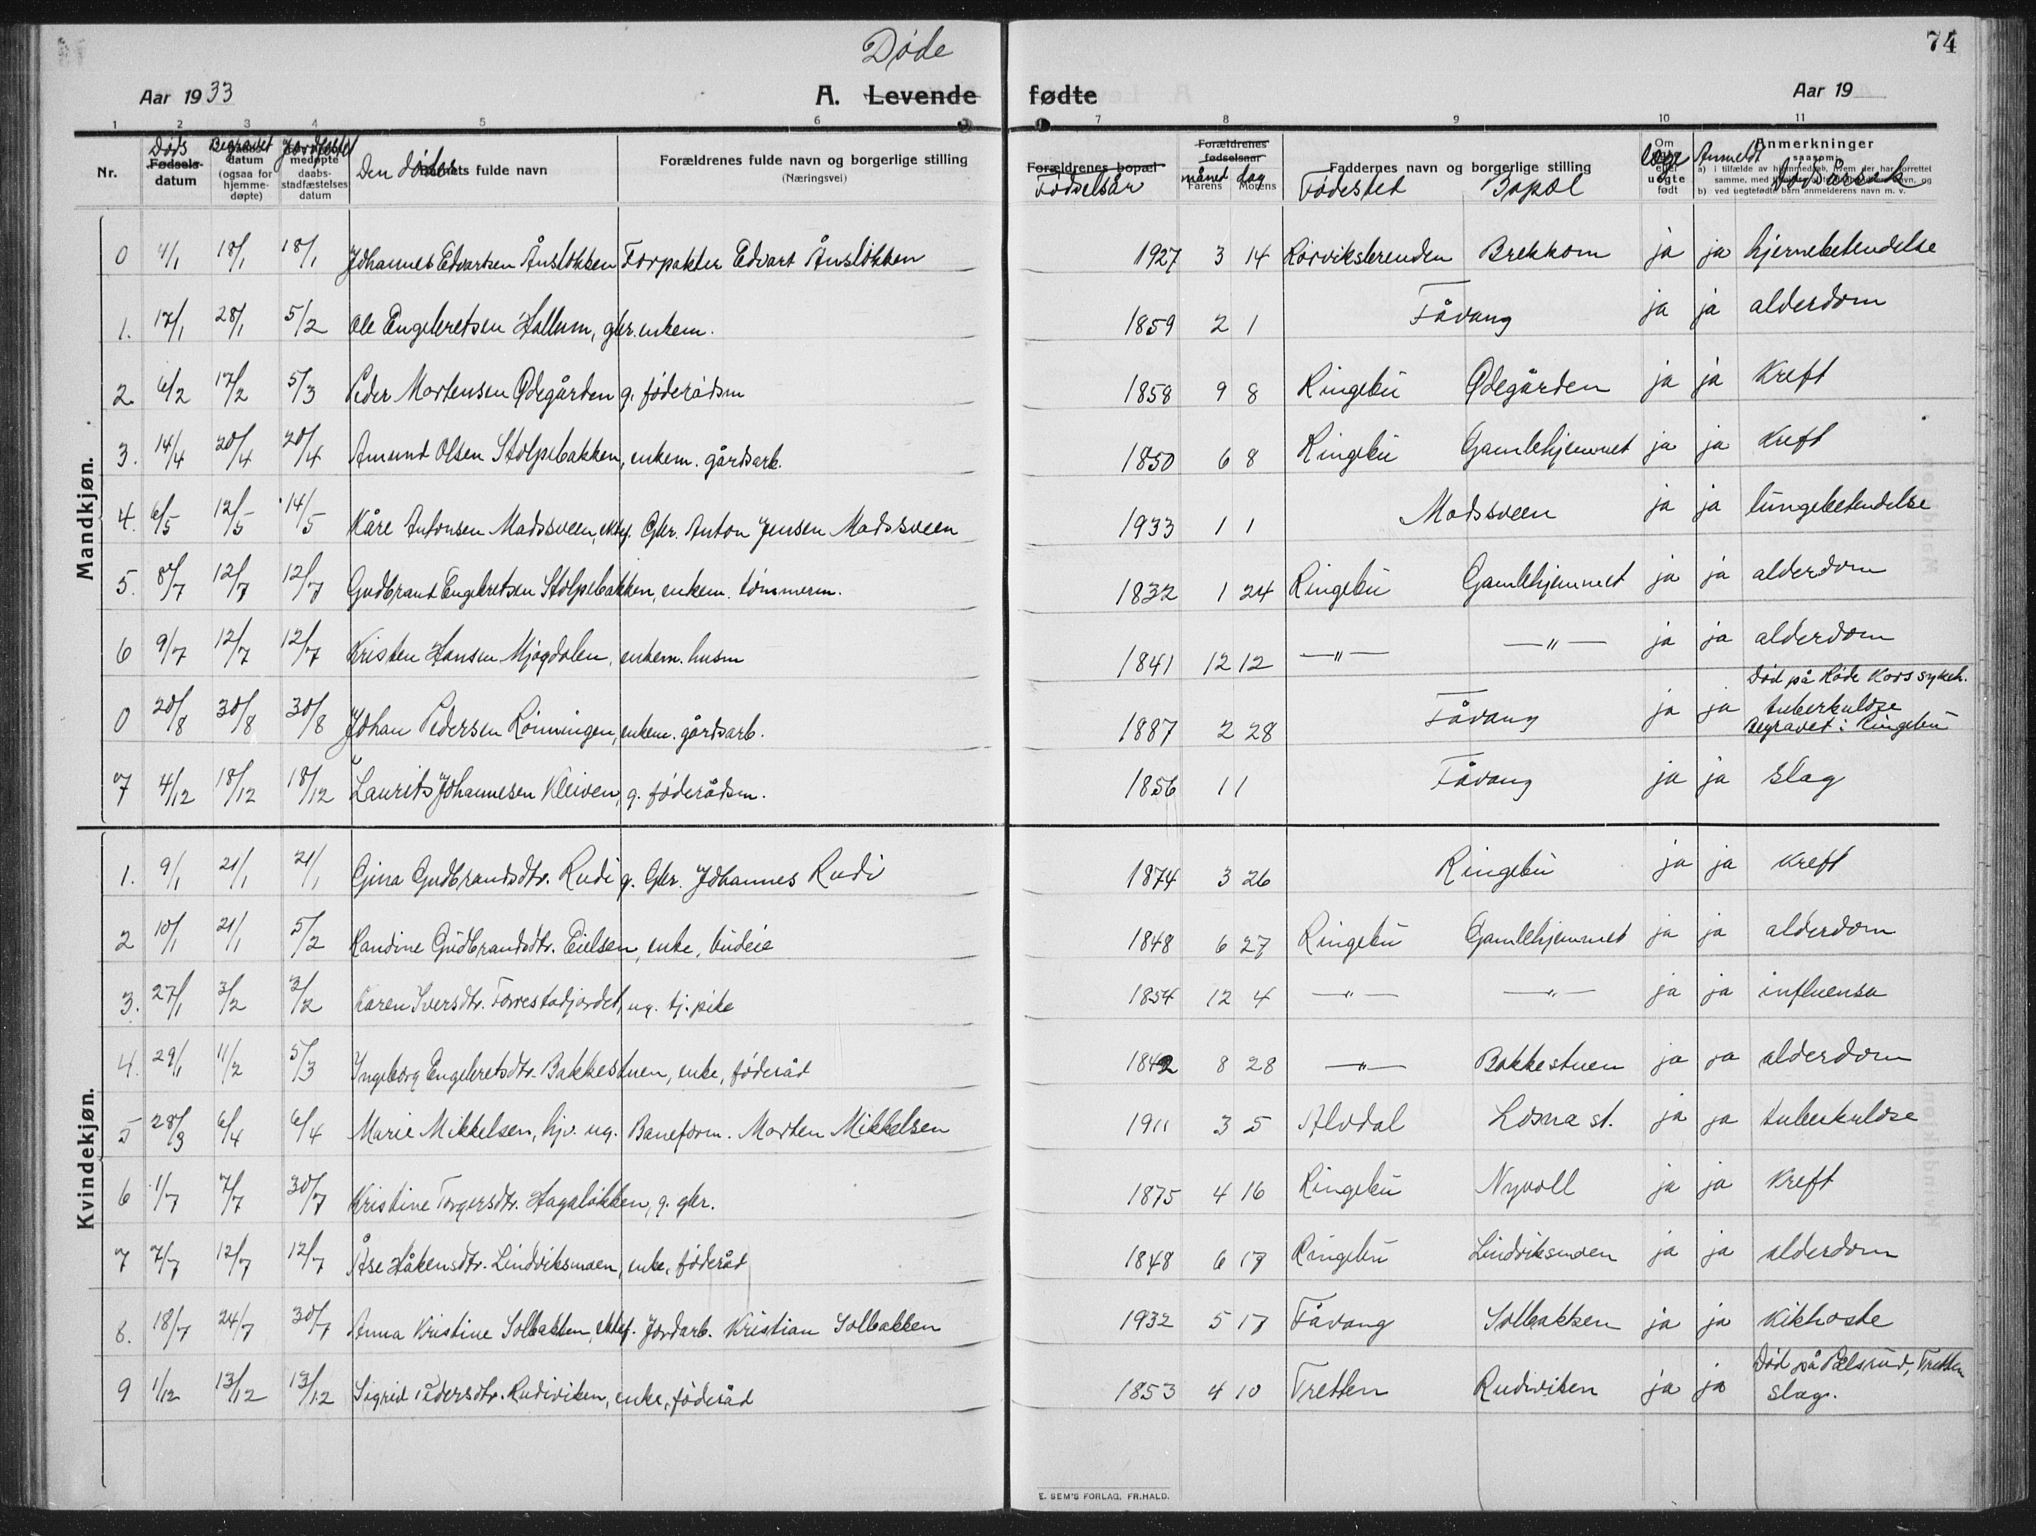 74
Døde
Aar 1933 A. Levende fødte Aar 19
1 2 3 4 5 6 7 8 9 10 11
Nr. Døds Fødsels-datum Begravet datum (ogsaa for hjemme-døpte) Jordfestet medøpte daabs-stadfæstelses datum Den dødes Barnets fulde navn Forældrenes fulde navn og borgerlige stilling (Næringsvei) Forældrenes bopæl Fødselsår Forældrenes fødselsaar måned dag Farens Morens Faddernes navn og borgerlige stilling Fødested Bopæl Om eller uegte født Anmeldt Anmerkninger saasom: Dødsårsak
Mandkjøn.
0 4/1 18/1 18/1 Johannes Edvartsen Ånsløkken Forpakter Edvart Ånsløkken 1927 3 14 Rørvikslerenden Brekkom ja ja hjernebetendelse
1. 17/1 28/1 5/2 Ole Engebretsen Hallum, gbr. enkem. 1859 2 1 Fåvang ja ja alderdom
2. 6/2 17/2 5/3 Peder Mortensen Ødegården g. føderådsm 1858 9 8 Ringebu Ødegården ja ja Kreft
3. 14/4 20/4 20/4 Amund Olsen Stolpebakken, enkem. gårdsarb. 1850 6 8 Ringebu Gamlehjemmet ja ja Kreft
4. 6/5 12/5 14/5 Kåre Antonsen Madssveen, ektef. Gbr. Anton Jensen Madssveen 1933 1 1 Madssveen ja ja lungebetendelse
5. 8/7 12/7 12/7 Gudbrand Engebretsen Stolpebakken, enkem. tømmerm. 1832 1 24 Ringebu Gamlehjemmet ja ja alderdom
6 9/7 12/7 12/7 Kristen Hansen Mjøgdalen, enkem. husm 1841 12 12 —"— —"— ja ja alderdom
0 20/8 30/8 30/8 Johan Pedersen Rønningen, enkem. gårdsarb. 1887 2 28 Fåvang ja ja Død på Røde Kors sykeh. tuberkulose begravet i Ringebu
7 4/12 18/12 18/12 Laurits Johannesen Kleiven, g. føderådsm. 1856 11 Fåvang ja ja slag
Kvindekjøn.
1. 9/1 21/1 21/1 Gina Gudbrandsdtr. Rudi g. Gbr. Johannes Rudi 1874 3 26 Ringebu ja ja Kreft
2 10/1 21/1 5/2 Randine Gudbrandsdtr. Eielsen, enke, budeie 1848 6 27 Ringebu Gamlehjemmet ja ja alderdom
3. 27/1 3/2 3/2 Karen Iversdtr. Forrestadjordet, ug. tj. pike 1854 12 4 —"— —"— ja ja influensa
4. 29/1 11/2 5/3 Ingeborg Engebretsdtr. Bakkestuen, enke, føderåd 1842 8 28 —"— Bakkestuen ja ja alderdom
5 28/3 6/4 6/4 Marie Mikkelsen, hjv. ug. Baneform. Morten Mikkelsen 1911 3 5 Alvdal Losna st. ja ja tuberkulose
6 1/7 7/7 30/7 Kristine Torgersdtr. Hagaløkken, g. gbr. 1875 4 16 Ringebu Nyvoll ja ja Kreft
7 7/7 12/7 12/7 Åse Håkensdtr. Lindviksmoen, enke, føderåd 1848 6 17 Ringebu Lindviksmoen ja ja alderdom
8. 18/7 24/7 30/7 Anna Kristine Solbakken, ektef. Jordarb. Kristian Solbakken 1932 5 17 Fåvang Solbakken ja ja Kikhoste
9 1/12 13/12 13/12 Sigrid Pedersdtr. Rudiviken, enke, føderåd 1853 4 10 Tretten Rudiviken ja ja Død på Pålsrud, Tretten slag.
E. SEM'S FORLAG, FR.HALD.